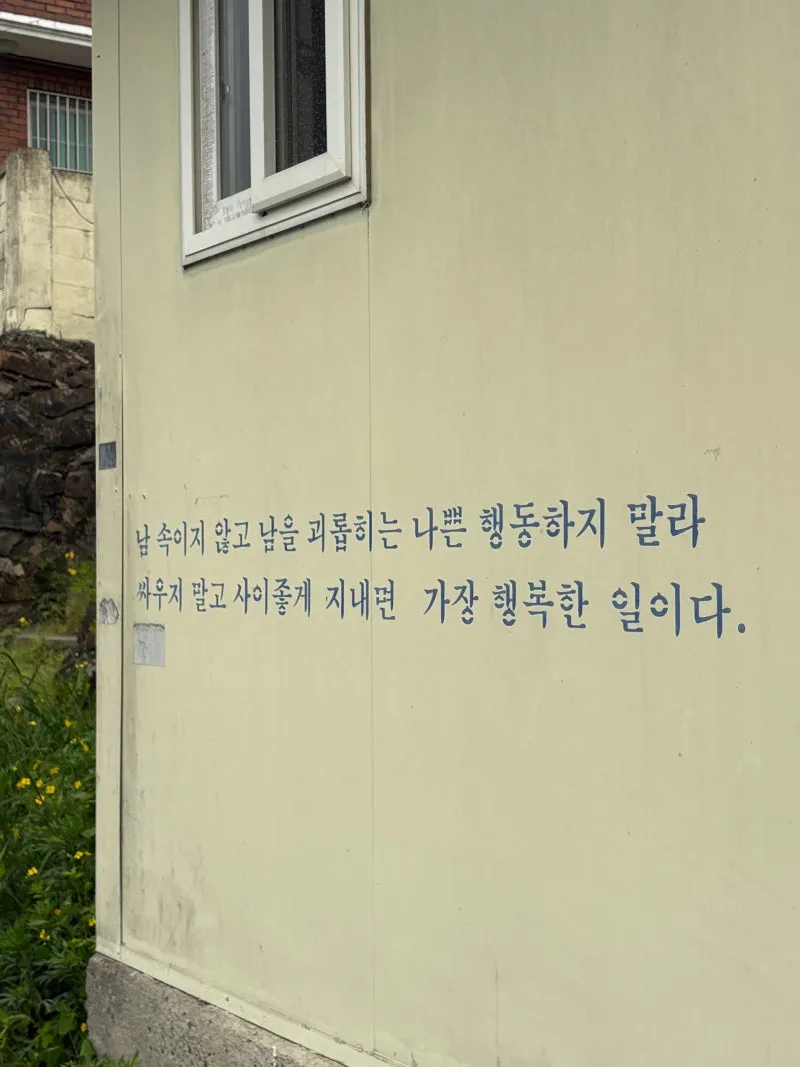 남 속이지 않고 남을 괴롭히는 나쁜 행동하지 말라
싸우지 말고 사이좋게 지내면 가장 행복한 일이다.